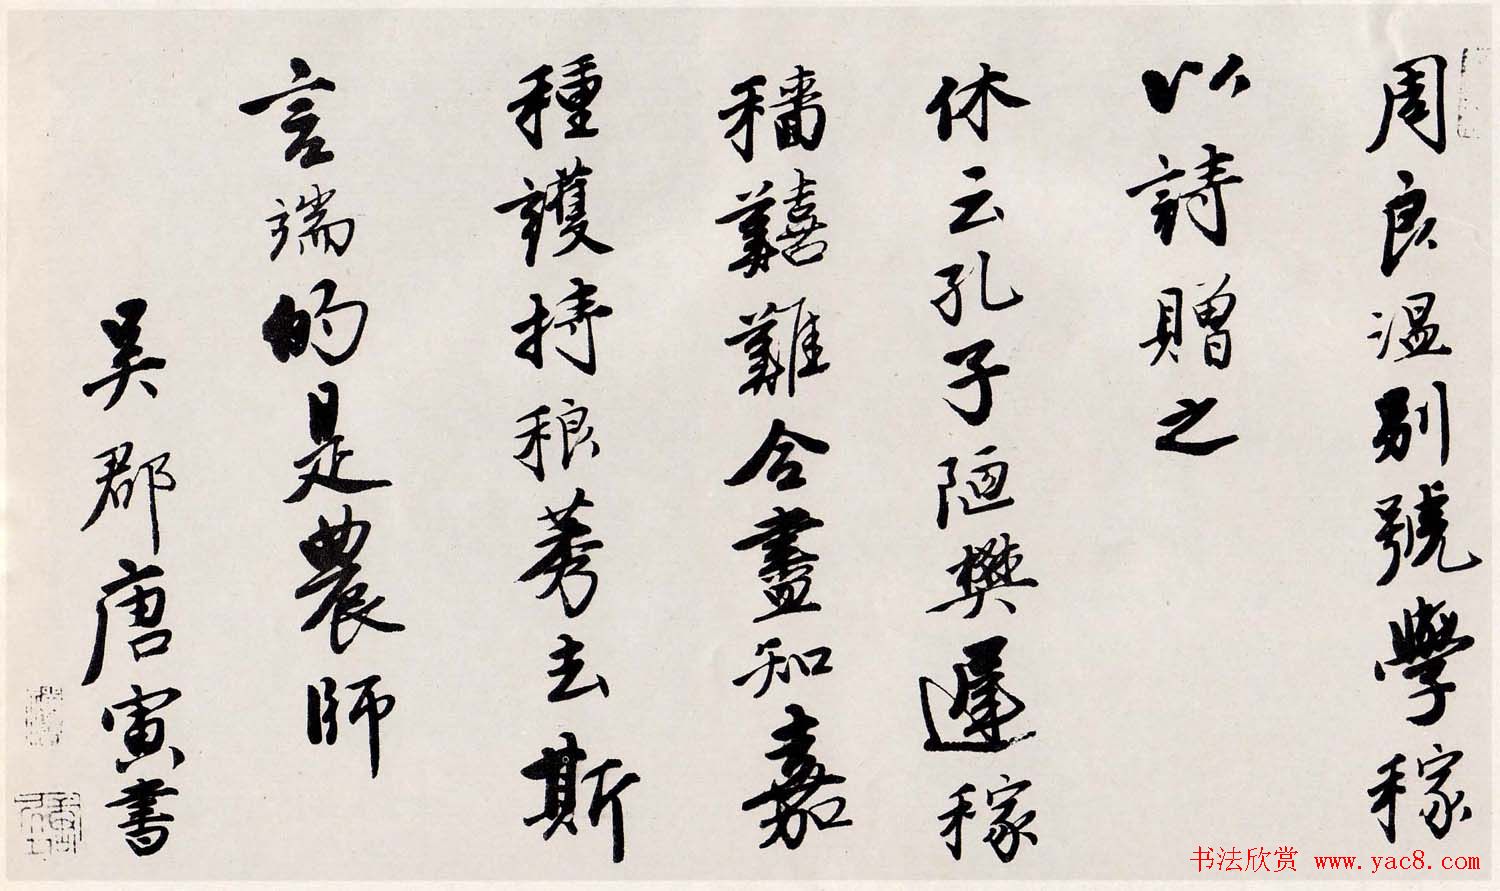 周良溫別號學稼
以詩贈之
休云孔子陋樊遲稼
穡囏難今盡知嘉
種護持稂莠去斯
言端的是農師
吳郡唐寅書
书法欣赏 www.yac8.com